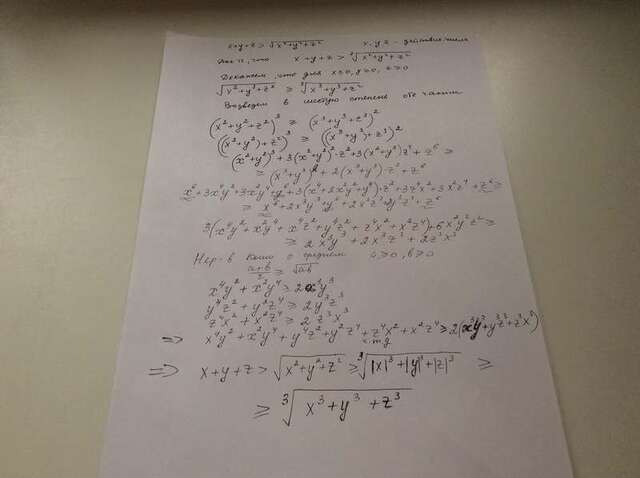 x+y+z > √(x²+y²+z²)   x, y, z - действит. числа
что x+y+z > ∛(x³+y³+z³)
Докажем, что для x≥0, y≥0, z≥0
√(x²+y²+z²) ≥ ∛(x³+y³+z³)
Возведем в шестую степень обе части
(x²+y²+z²)³ ≥ (x³+y³+z³)²
((x²+y²)+z²)³ ≥ ((x³+y³)+z³)²
(x²+y²)³+3(x²+y²)²·z²+3(x²+y²)z⁴+z⁶ ≥
≥ (x³+y³)²+2(x³+y³)·z³+z⁶
x⁶+3x⁴y²+3x²y⁴+y⁶+3(x⁴+2x²y²+y⁴)·z²+3z⁴x²+3y²z⁴+z⁶ ≥
≥ x⁶+2x³y³+y⁶+2x³z³+2y³z³+z⁶
3(x⁴y²+x²y⁴+x⁴z²+y⁴z²+z⁴x²+y²z⁴)+6x²y²z² ≥
≥ 2x³y³+2x³z³+2z³y³
Нер-в Коши о среднем   a≥0, b≥0
(a+b)/2 ≥ √(ab)
x⁴y²+x²y⁴ ≥ 2x³y³
y⁴z²+y²z⁴ ≥ 2y³z³
z⁴x²+x²z⁴ ≥ 2z³x³
=> x⁴y²+x²y⁴+y⁴z²+y²z⁴+z⁴x²+x²z⁴ ≥ 2(x³y³+y³z³+z³x³)
ч.т.д
=> x+y+z > √(x²+y²+z²) ≥ ∛(|x|³+|y|³+|z|³) ≥
≥ ∛(x³+y³+z³)